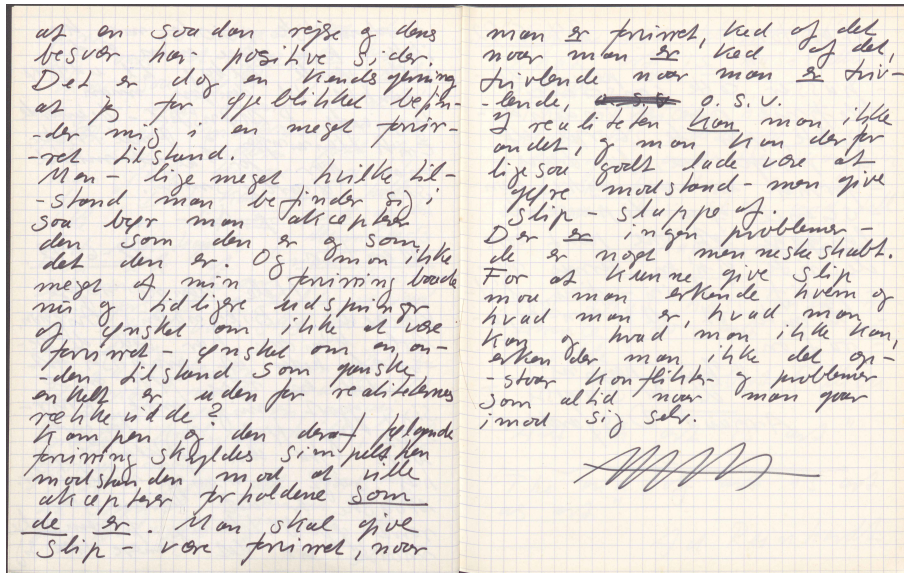 at en saadan rejse og dens
besvær har positive sider.
Det er dog en kendsgerning
at jeg for øjeblikket befin-
-der mig i en meget forvir-
-ret tilstand.
Men - lige meget hvilke til-
-stand man befinder sig i
saa bør man akceptere
den som den er og som
det den er. Og mon ikke
meget af min forvirring baade
nu og tidligere udspringer
af ønsket om ikke at være
forvirret - ønsket om en an-
-den tilstand som ganske
enkelt er uden for realiteternes
rækkevidde?
Kampen og den deraf følgende
forvirring skyldes simpelthen
modstanden mod at ville
akceptere forholdene som
de er. Man skal give
slip - være forvirret, naar
man er forvirret, ked af det
naar man er ked af det,
tvivlende naar man er tviv-
-lende, o.s.v. o.s.v.
I realiteten kan man ikke
andet, og man kan derfor
ligesaa godt lade være at
gøre modstand - men give
slip - slappe af.
Der er ingen problemer -
de er noget menneskeskabt.
For at kunne give slip
maa man erkende hvem og
hvad man er, hvad man
kan og hvad man ikke kan,
erkender man ikke det op-
-staar konflikter og problemer
som altid naar man gaar
imod sig selv.